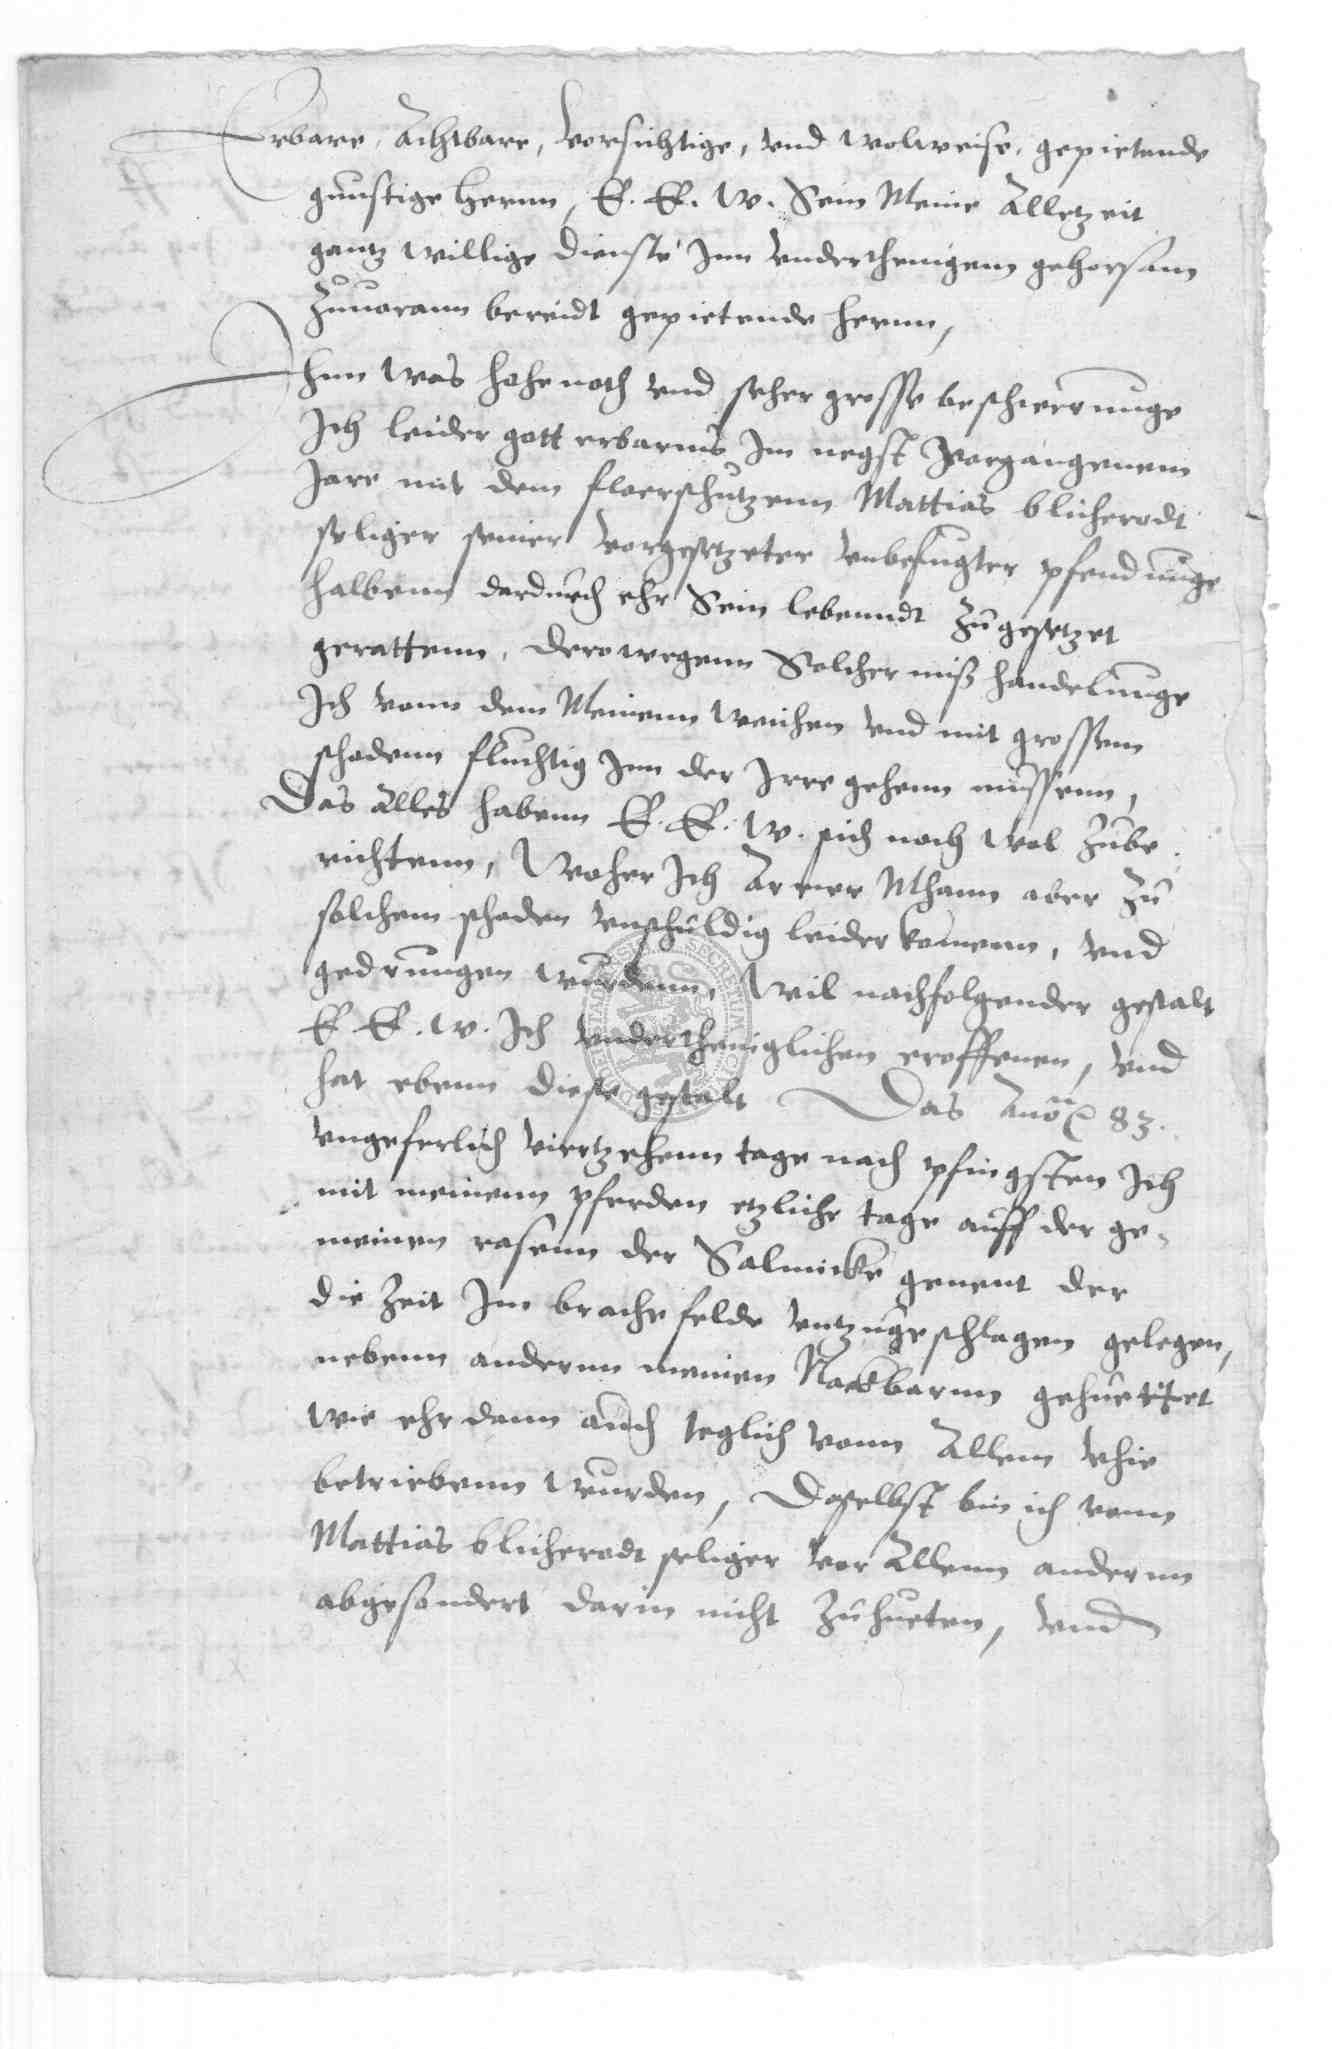 Erbare, Achtbare, Vorsichtige, vnd wolweise, gepietende
gunstige Hernn, E. E. W. Sein Meine Alletzeit
gantz willige dienste Jnn vnderthenigem gehorsam
Zuuorann bereidt gepietende Hernn,
Jnn was hohe noth vnd seher grosse beschwerunge
Jch leider gott erbarms Jm negst vorgangenem
Jare mit dem fluerschutzenn Mattias blicherodt
seliger seiner vorgesetzeter vnbefugter pfendunge
halbenn dardurch ehr Sein lebenndt Zugesetzet
gerattenn, derowegenn Solcher mißhandelunge
Jch vonn dem Meinenn weichen vnd mit grossem
schadenn fluchtig Jnn der Jrre gehenn mussenn,
Das Alles habenn E. E. W. sich noch wol Zube
richtenn, Woher Jch Armer Mhann aber Zu
solchem schaden vnschuldig leider komenn, vnd
gedrungen wurdenn, Wil nachfolgender gestalt
E. E. W. Jch vndertheniglichen eroffenen, vnd
hat ebenn diese gestalt Das Anno 83.
vngeferlich viertzehenn tage nach pfingsten Jch
mit meinenn pferden etzliche tage auff der ge-
meinen rasenn der Salmicke genent der
die Zeit Jm brache felde vntzugeschlagen gelegen,
nebenn andernn meinen Nackbarnn gehuettet
wie ehr dann auch teglich vonn Allem vhie
betriebenn wurden, Doselbst bin ich vonn
Mattias blicherodt seliger vor Allenn andernn
abgesondert darin nicht Zuhueten, vnd